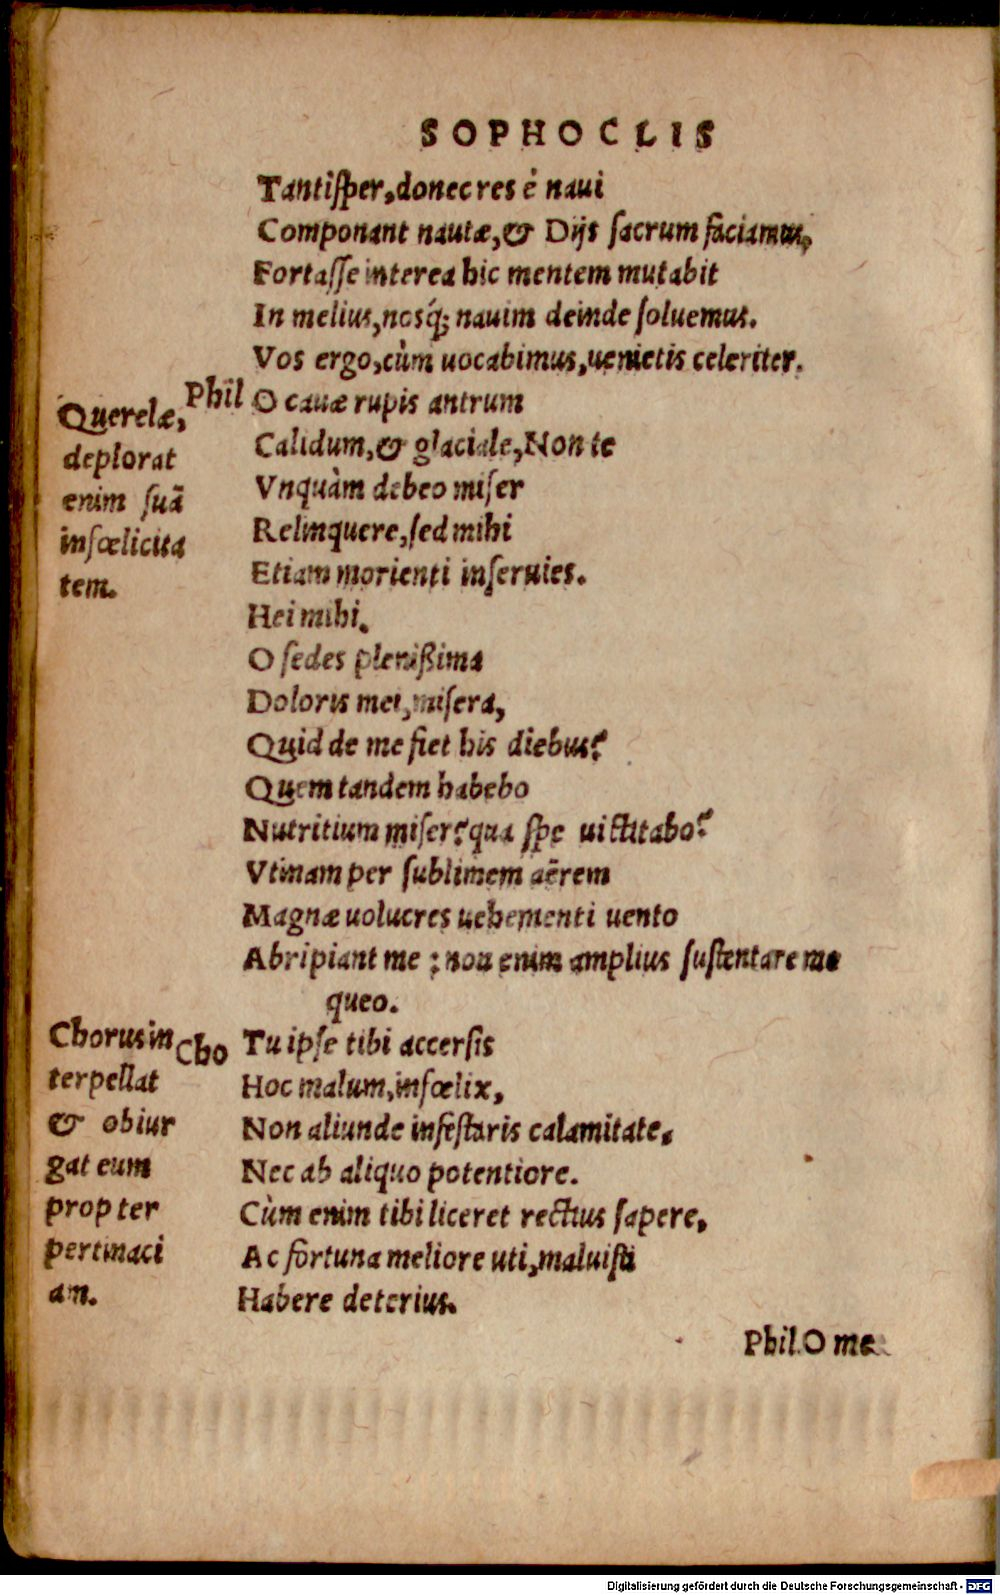 SOPHOCLIS
Tantiſper, donec res é naui
Componant nautæ, & Dijs ſacrum faciamus,
Fortaſſe interea hic mentem mutabit
In melius, nosq́; nauim deinde ſoluemus.
Vos ergo, cùm uocabimus, uenietis celeriter.
Phil O cauæ rupis antrum
Calidum, & glaciale, Non te
Vnquàm debeo miſer
Relinquere, ſed mihi
Etiam morienti inſeruies.
Hei mihi.
O ſedes pleniſsima
Doloris mei, miſera,
Quid de me fiet his diebus?
Quem tandem habebo
Nutritium miſer? qua ſpe uictitabo?
Vtinam per ſublimem aërem
Magnæ uolucres uehementi uento
Abripiant me : non enim amplius ſuſtentare me
queo.
Cho Tu ipſe tibi accerſis
Hoc malum, infœlix,
Non aliunde infeſtaris calamitate,
Nec ab aliquo potentiore.
Cùm enim tibi liceret rectius ſapere,
Ac fortuna meliore uti, maluiſti
Habere deterius.
Phil. O me
Querelæ,
deplorat
enim ſuā
infœlicita
tem.
Chorus in
terpellat
& obiur
gat eum
propter
pertinaci
am.
Digitalisierung gefördert durch die Deutsche Forschungsgemeinschaft - DFG